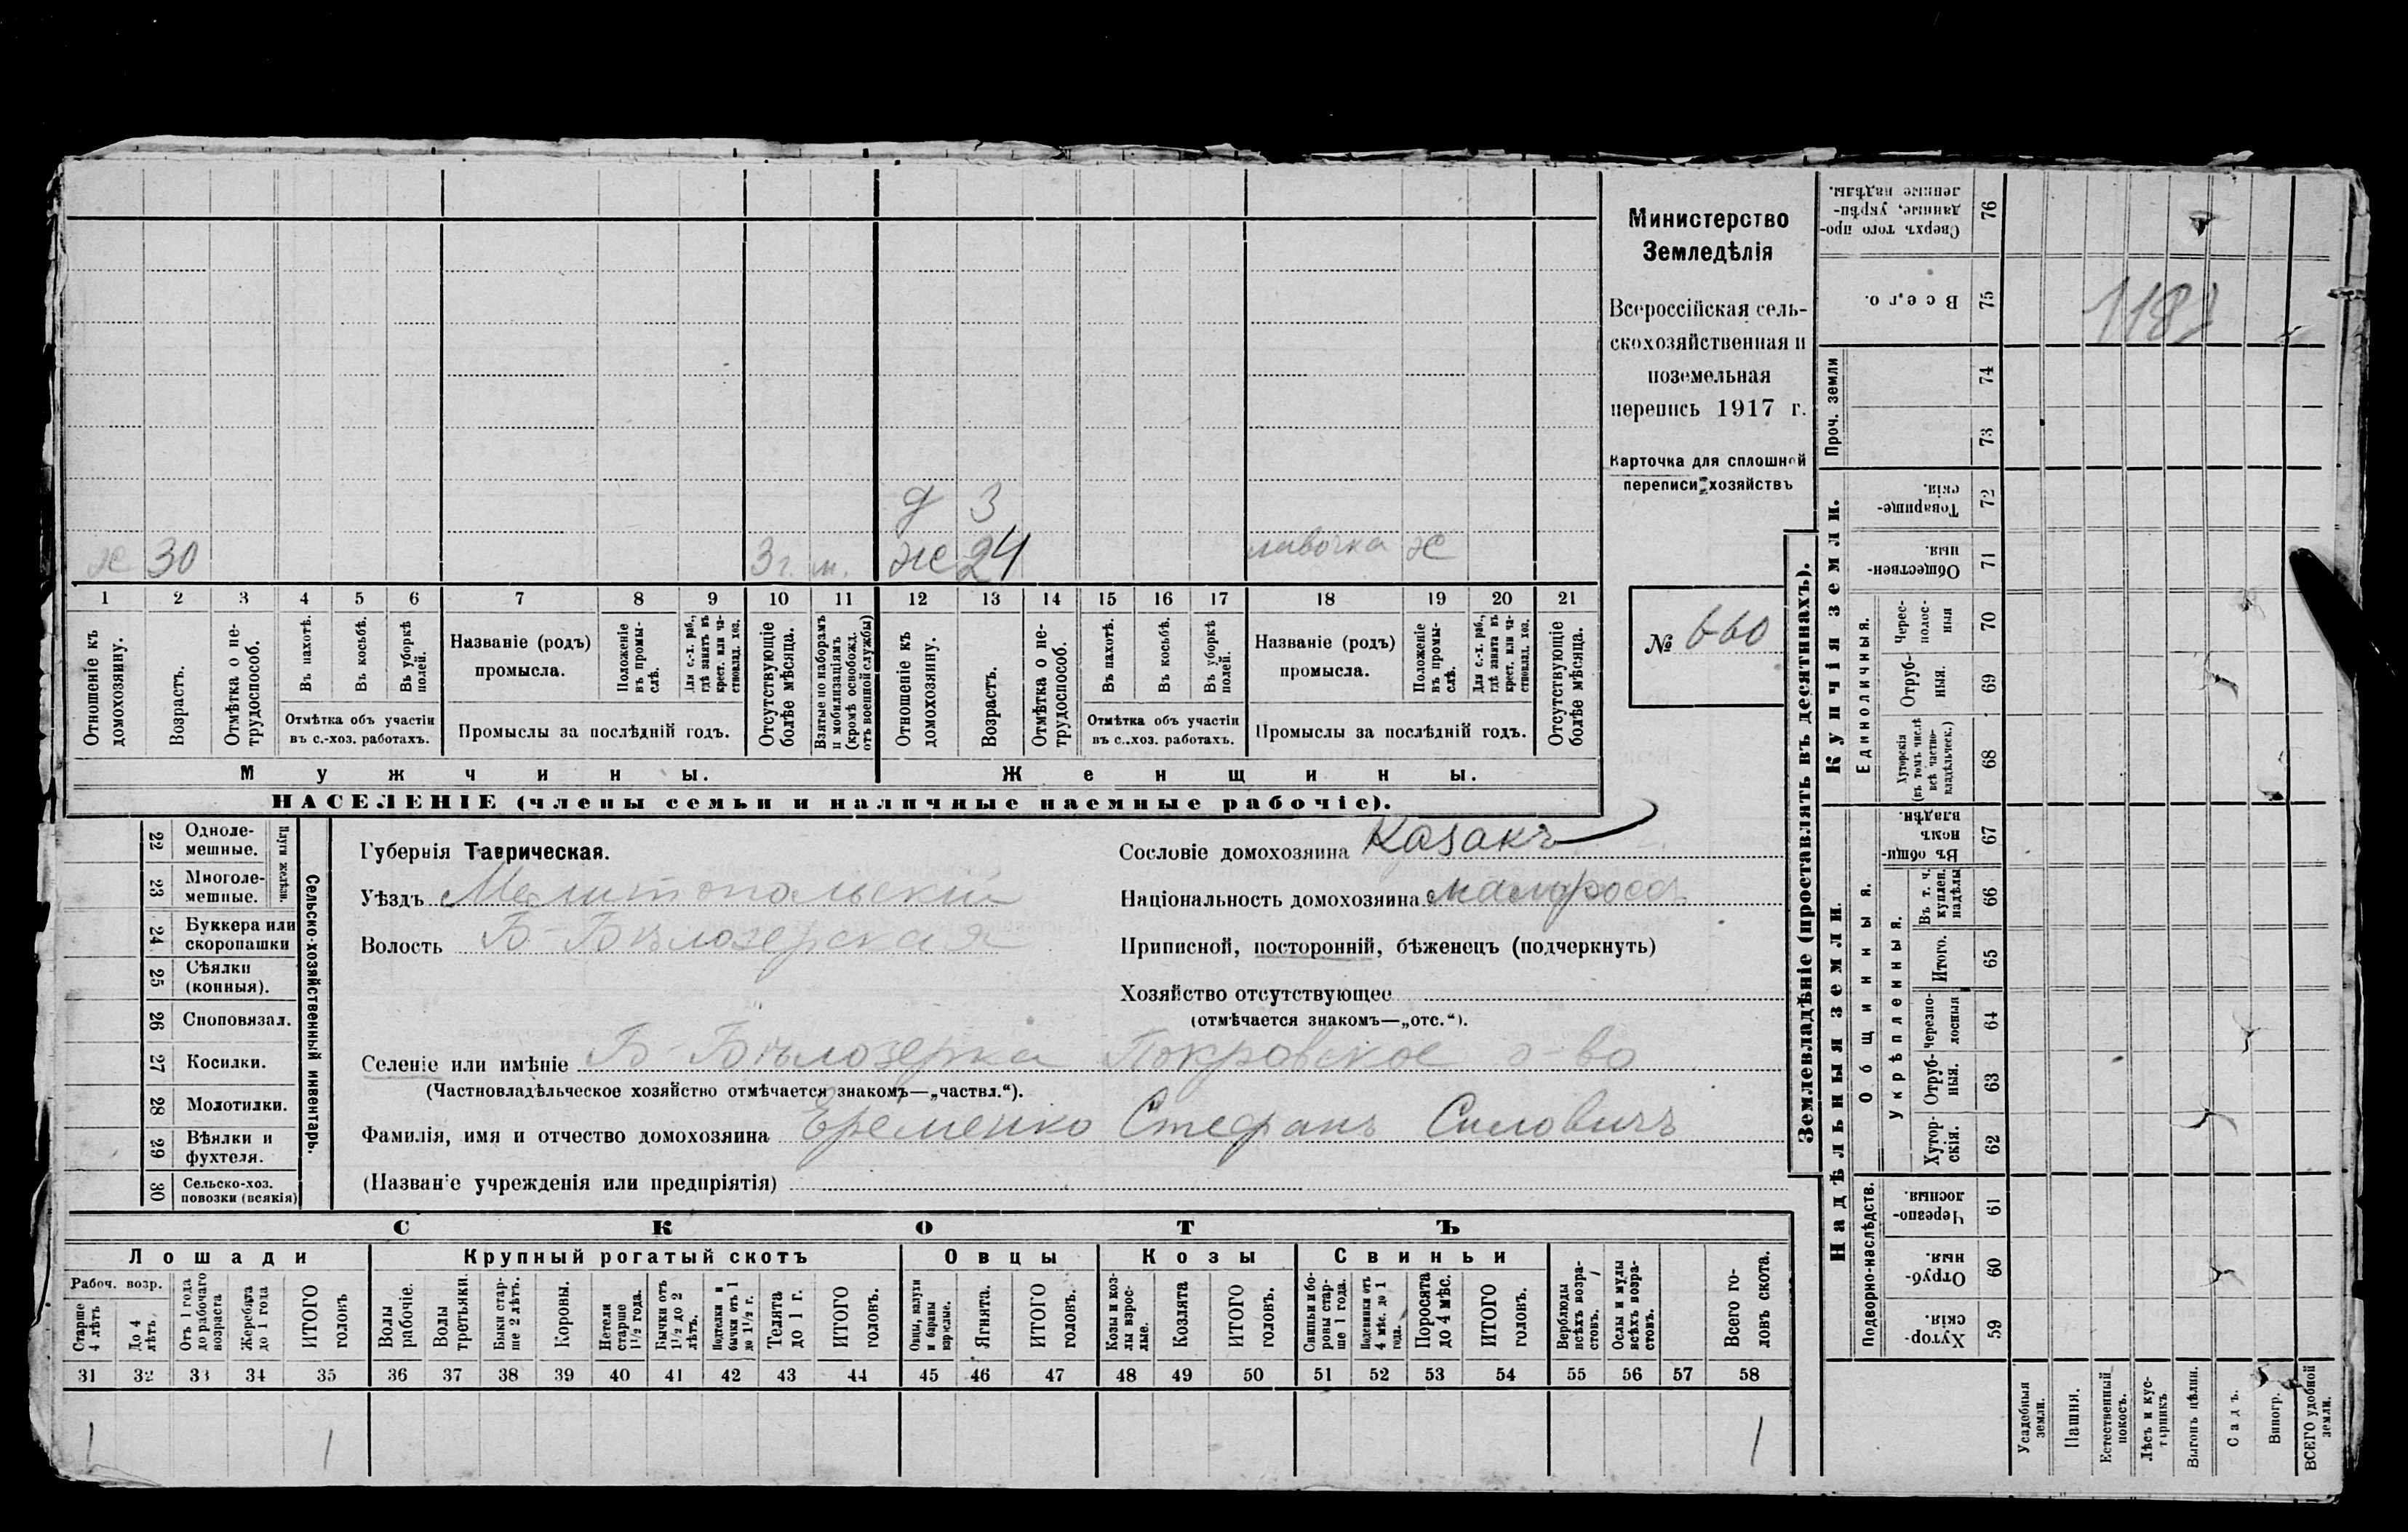 Министерство
Земледѣлія
Всероссійская сель-
скохозяйственная и
поземельная
перепись 1917 г.
Карточка для сплошной
переписи хозяйствъ
№ 660
1181
д 3
х 30 3 г. м. ж 24 лавочка х
1 2 3 4 5 6 7 8 9 10 11 12 13 14 15 16 17 18 19 20 21
Отношеніе къ домохозяину.
Возрастъ.
Отмѣтка о не-трудоспособ.
Въ пахотѣ.
Въ косьбѣ.
Въ уборкѣ полей.
Отмѣтка объ участіи
въ с.-хоз. работахъ.
Названіе (родъ)
промысла.
Положеніе въ промы-слѣ.
Для с.-х. раб., гдѣ занятъ въ крест. или ча-стновлад. хоз.
Промыслы за послѣдній годъ.
Отсутствующіе болѣе мѣсяца.
Взятые по наборамъ и мобилизаціямъ (кромѣ освобожд. отъ военной службы)
Отношеніе къ домохозяину.
Возрастъ.
Отмѣтка о не-трудоспособ.
Въ пахотѣ.
Въ косьбѣ.
Въ уборкѣ полей.
Отмѣтка объ участіи
въ с..хоз. работахъ.
Названіе (родъ)
промысла.
Положеніе въ промы-слѣ.
Для с.-х. раб., гдѣ занята въ крест. или ча-стновлад. хоз.
Промыслы за послѣдній годъ.
Отсутствующіе болѣе мѣсяца.
Мужчины.
Женщины.
НАСЕЛЕНІЕ (члены семьи и наличные наемные рабочіе).
Сельско-хозяйственный инвентарь.
Плуги желѣзн.
22 Одноле-мешные.
23 Многоле-мешные.
24 Буккера или скоропашки
25 Сѣялки (конныя).
26 Сноповязал.
27 Косилки.
28 Молотилки.
29 Вѣялки и фухтеля.
30 Сельско-хоз. повозки (всякія)
Губернія Таврическая.
Уѣздъ Мелитопольскій
Волость Б-Бѣлозерская
Сословіе домохозяина Казакъ
Національность домохозяина малоросс.
Приписной, посторонній, бѣженецъ (подчеркнуть)
Хозяйство отсутствующее
(отмѣчается знакомъ—„отс.“).
Селеніе или имѣніе Б-Бѣлозерка Покровское о-во
(Частновладѣльческое хозяйство отмѣчается знакомъ—„частвл.“).
Фамилія, имя и отчество домохозяина Еременко Стефанъ Силовичъ
(Названіе учрежденія или предпріятія)
СКОТЪ
Лошади
Крупный рогатый скотъ
Овцы
Козы
Свиньи
Рабоч. возр.
Старше 4 лѣтъ
До 4 лѣтъ.
Отъ 1 года до рабочаго возраста
Жеребята до 1 года
ИТОГО головъ
Волы рабочіе.
Волы третьяки.
Быки стар-ше 2 лѣтъ.
Коровы.
Нетели старше 1½ года.
Бычки отъ 1½ до 2 лѣтъ.
Подтелки и бычки отъ 1 до 1½ г.
Телята до 1 г.
ИТОГО головъ.
Овцы, валухи и бараны взрослые.
Ягнята.
ИТОГО головъ.
Козы и коз-лы взрос-лые.
Козлята
ИТОГО головъ.
Свиньи и бо-ровы стар-ше 1 года.
Подсвинки отъ 4 мѣс. до 1 года.
Поросята до 4 мѣс.
ИТОГО головъ.
Верблюды всѣхъ возра-стовъ.
Ослы и мулы всѣхъ возра-стовъ.
Всего го-ловъ скота.
31 32 33 34 35 36 37 38 39 40 41 42 43 44 45 46 47 48 49 50 51 52 53 54 55 56 57 58
1 1 1
Землевладѣніе (проставлять въ десятинахъ).
Сверхъ того про-данные, укрѣп-ленные надѣлы. 76
Всего. 75
Проч. земли
74
73
Купчія земли.
Товарище-скія. 72
Обществен-ныя. 71
Единоличныя.
Черес-полос-ныя 70
Отруб-ныя. 69
Хуторскія (въ томъ числѣ всѣ частно-владѣльческ.) 68
Надѣльныя земли.
Общинныя.
Въ общи-номъ владѣн. 67
Укрѣпленныя.
Въ т. ч. куплен. надѣлы 66
Итого. 65
Черезпо-лосныя 64
Отруб-ныя. 63
Хутор-скія. 62
Подворно-наслѣдств.
Черезпо-лосныя. 61
Отруб-ныя. 60
Хутор-скія. 59
Усадебныя земли.
Пашня.
Естественный покосъ.
Лѣсъ и кус-тарникъ
Выгонъ цѣлин.
Садъ.
Виногр.
ВСЕГО удобной земли.